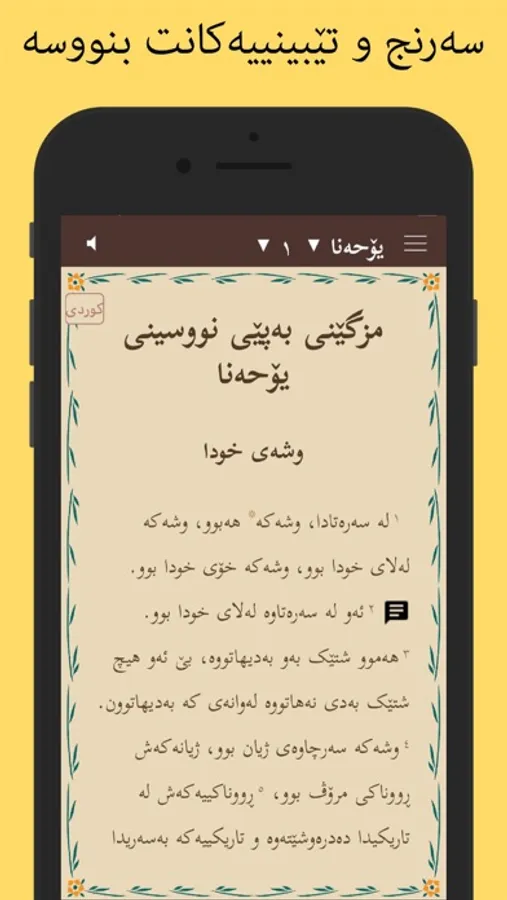 سەرنج و تێبینییەکانت بنووسە
یۆحەنا ▼ ١ ▼
کوردی
مزگێنی بەپێی نووسینی
یۆحەنا
وشەی خودا
١ لە سەرەتادا، وشەکە* هەبوو، وشەکە
لەلای خودا بوو، وشەکە خۆی خودا بوو.
٢ ئەو لە سەرەتاوە لەلای خودا بوو.
٣ هەموو شتێک بەو بەدیهاتووە، بێ ئەو هیچ
شتێک بەدی نەهاتووە لەوانەی کە بەدیهاتوون.
٤ وشەکە سەرچاوەی ژیان بوو، ژیانەکەش
ڕووناکی مرۆڤ بوو، ٥ ڕووناکییەکەش لە
تاریکیدا دەدرەوشێتەوە و تاریکییەکە بەسەریدا